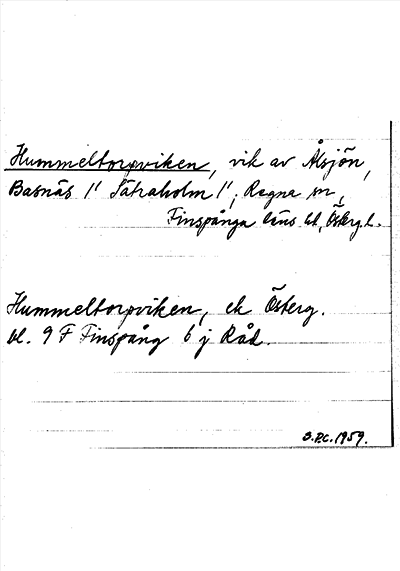 Hummeltorpviken, vik av Ålsjön,
Basnäs 1/1 Sätraholm 1/1, Regna sn,
Finspånga läns hd, Österg. l.
Hummeltorpviken, ek Österg.
bl. 9 F Finspång 6 j Råd.
S.P.C. 1959.